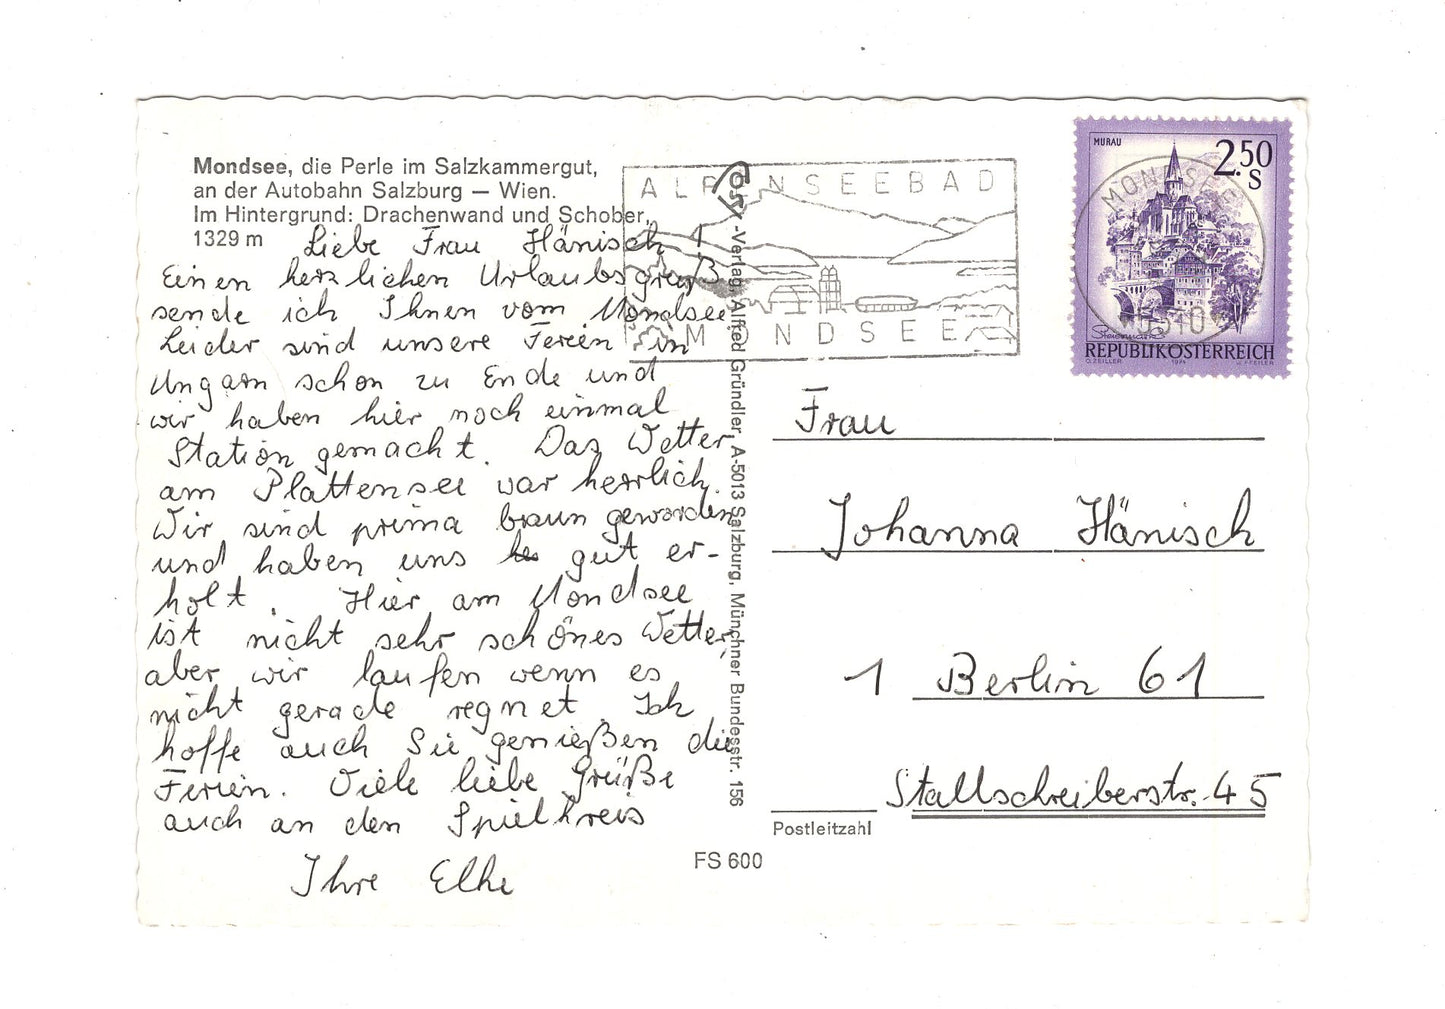 Mondsee, die Perle im Salzkammergut,
an der Autobahn Salzburg — Wien.
Im Hintergrund: Drachenwand und Schober,
1329 m
Liebe Frau Hänisch !
Einen herzlichen Urlaubsgruß
sende ich Ihnen vom Mondsee
Leider sind unsere Ferien in
Ungarn schon zu Ende und
wir haben hier noch einmal
Station gemacht. Das Wetter
am Plattensee war herrlich.
Wir sind prima braun geworden
und haben uns gut er-
holt. Hier am Mondsee
ist nicht sehr schönes Wetter,
aber wir laufen wenn es
nicht gerade regnet. Ich
hoffe auch Sie genießen die
Ferien. Viele liebe Grüße
auch an den Spielkreis
Ihre Elke
ALPENSEEBAD
MONDSEE
-Verlag, Alfred Gründler, A-5013 Salzburg, Münchner Bundesstr. 156
FS 600
MURAU
2.50
S
MONDSEE
5310
Steiermark
REPUBLIK ÖSTERREICH
O.ZEILLER 1974 W.PFEILER
Frau
Johanna Hänisch
1 Berlin 61
Stallschreiberstr. 45
Postleitzahl